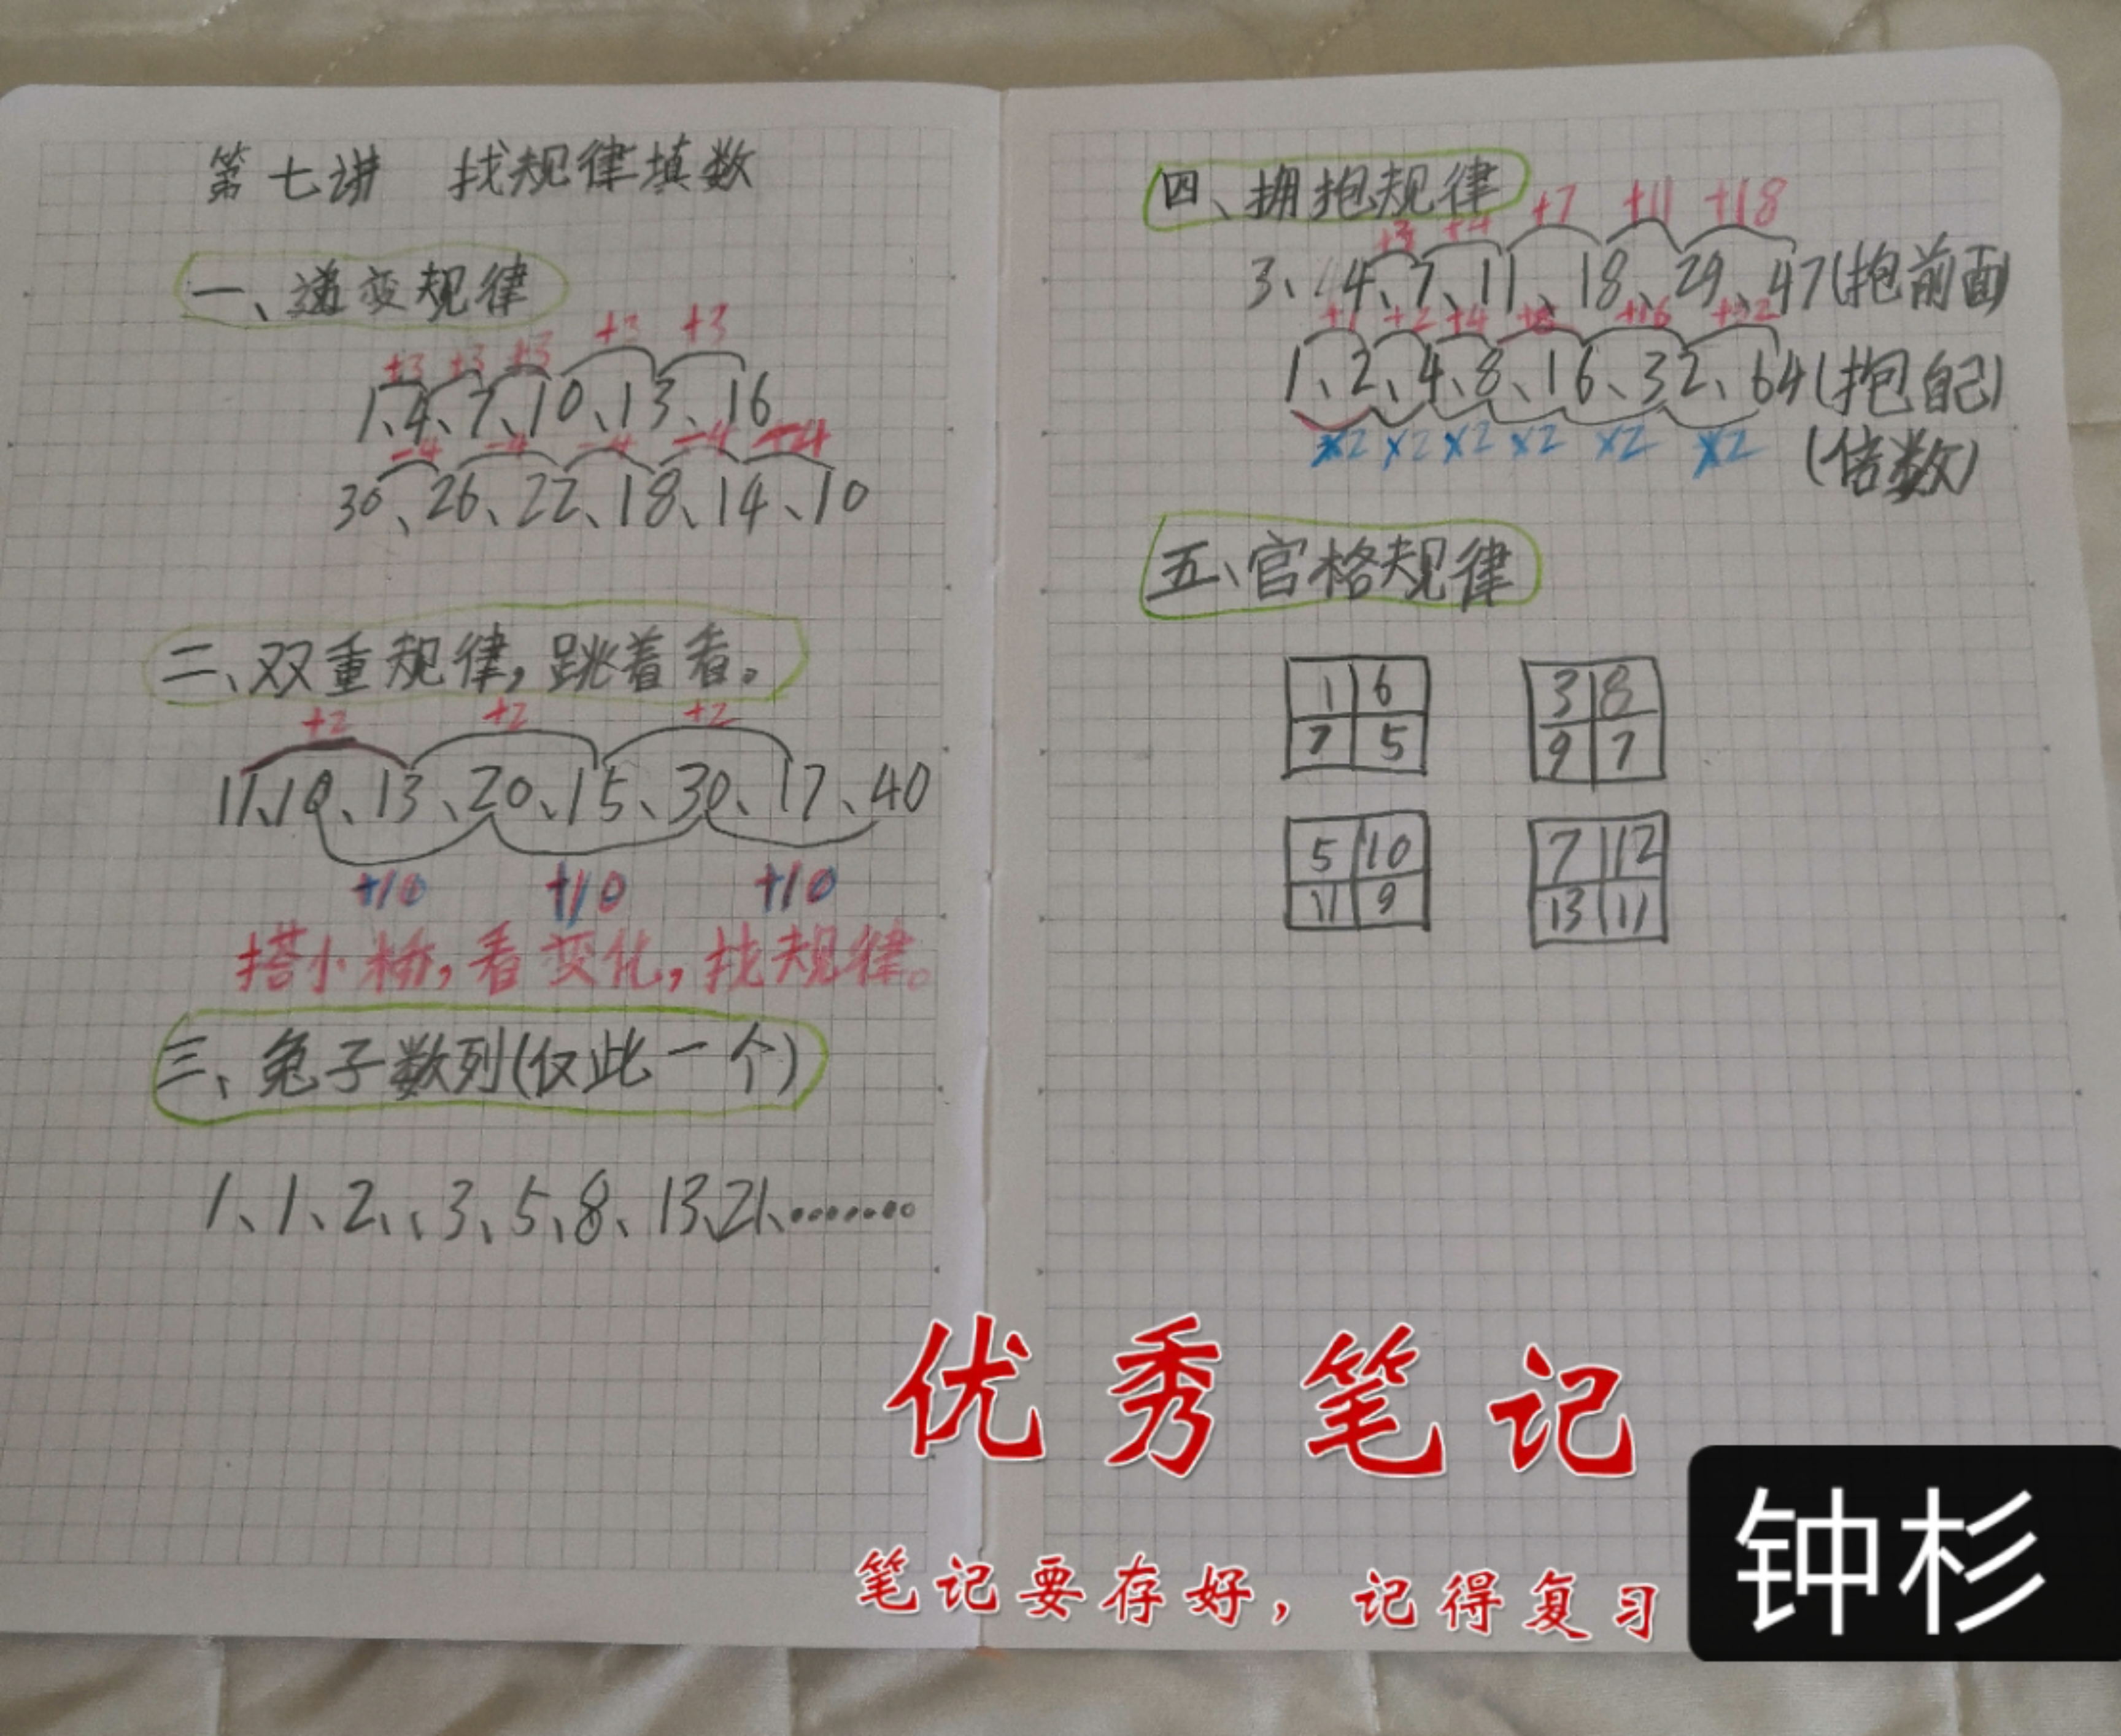 第七讲 找规律填数
一、递变规律
+3 +3 +3 +3 +3
1、4、7、10、13、16
-4 -4 -4 -4 -4
30、26、22、18、14、10
二、双重规律,跳着看。
+2 +2 +2
11、10、13、20、15、30、17、40
+10 +10 +10
搭小桥,看变化,找规律。
三、兔子数列(仅此一个)
1、1、2、、3、5、8、13、21、………
四、拥抱规律
+3 +4 +7 +11 +18
3、4、7、11、18、29、47(抱前面)
+1 +2 +4 +8 +16 +32
1、2、4、8、16、32、64(抱自己)
×2 ×2 ×2 ×2 ×2 ×2 (倍数)
五、宫格规律
1 6 3 8
7 5 9 7
5 10 7 12
11 9 13 11
优秀笔记
笔记要存好,记得复习
钟杉